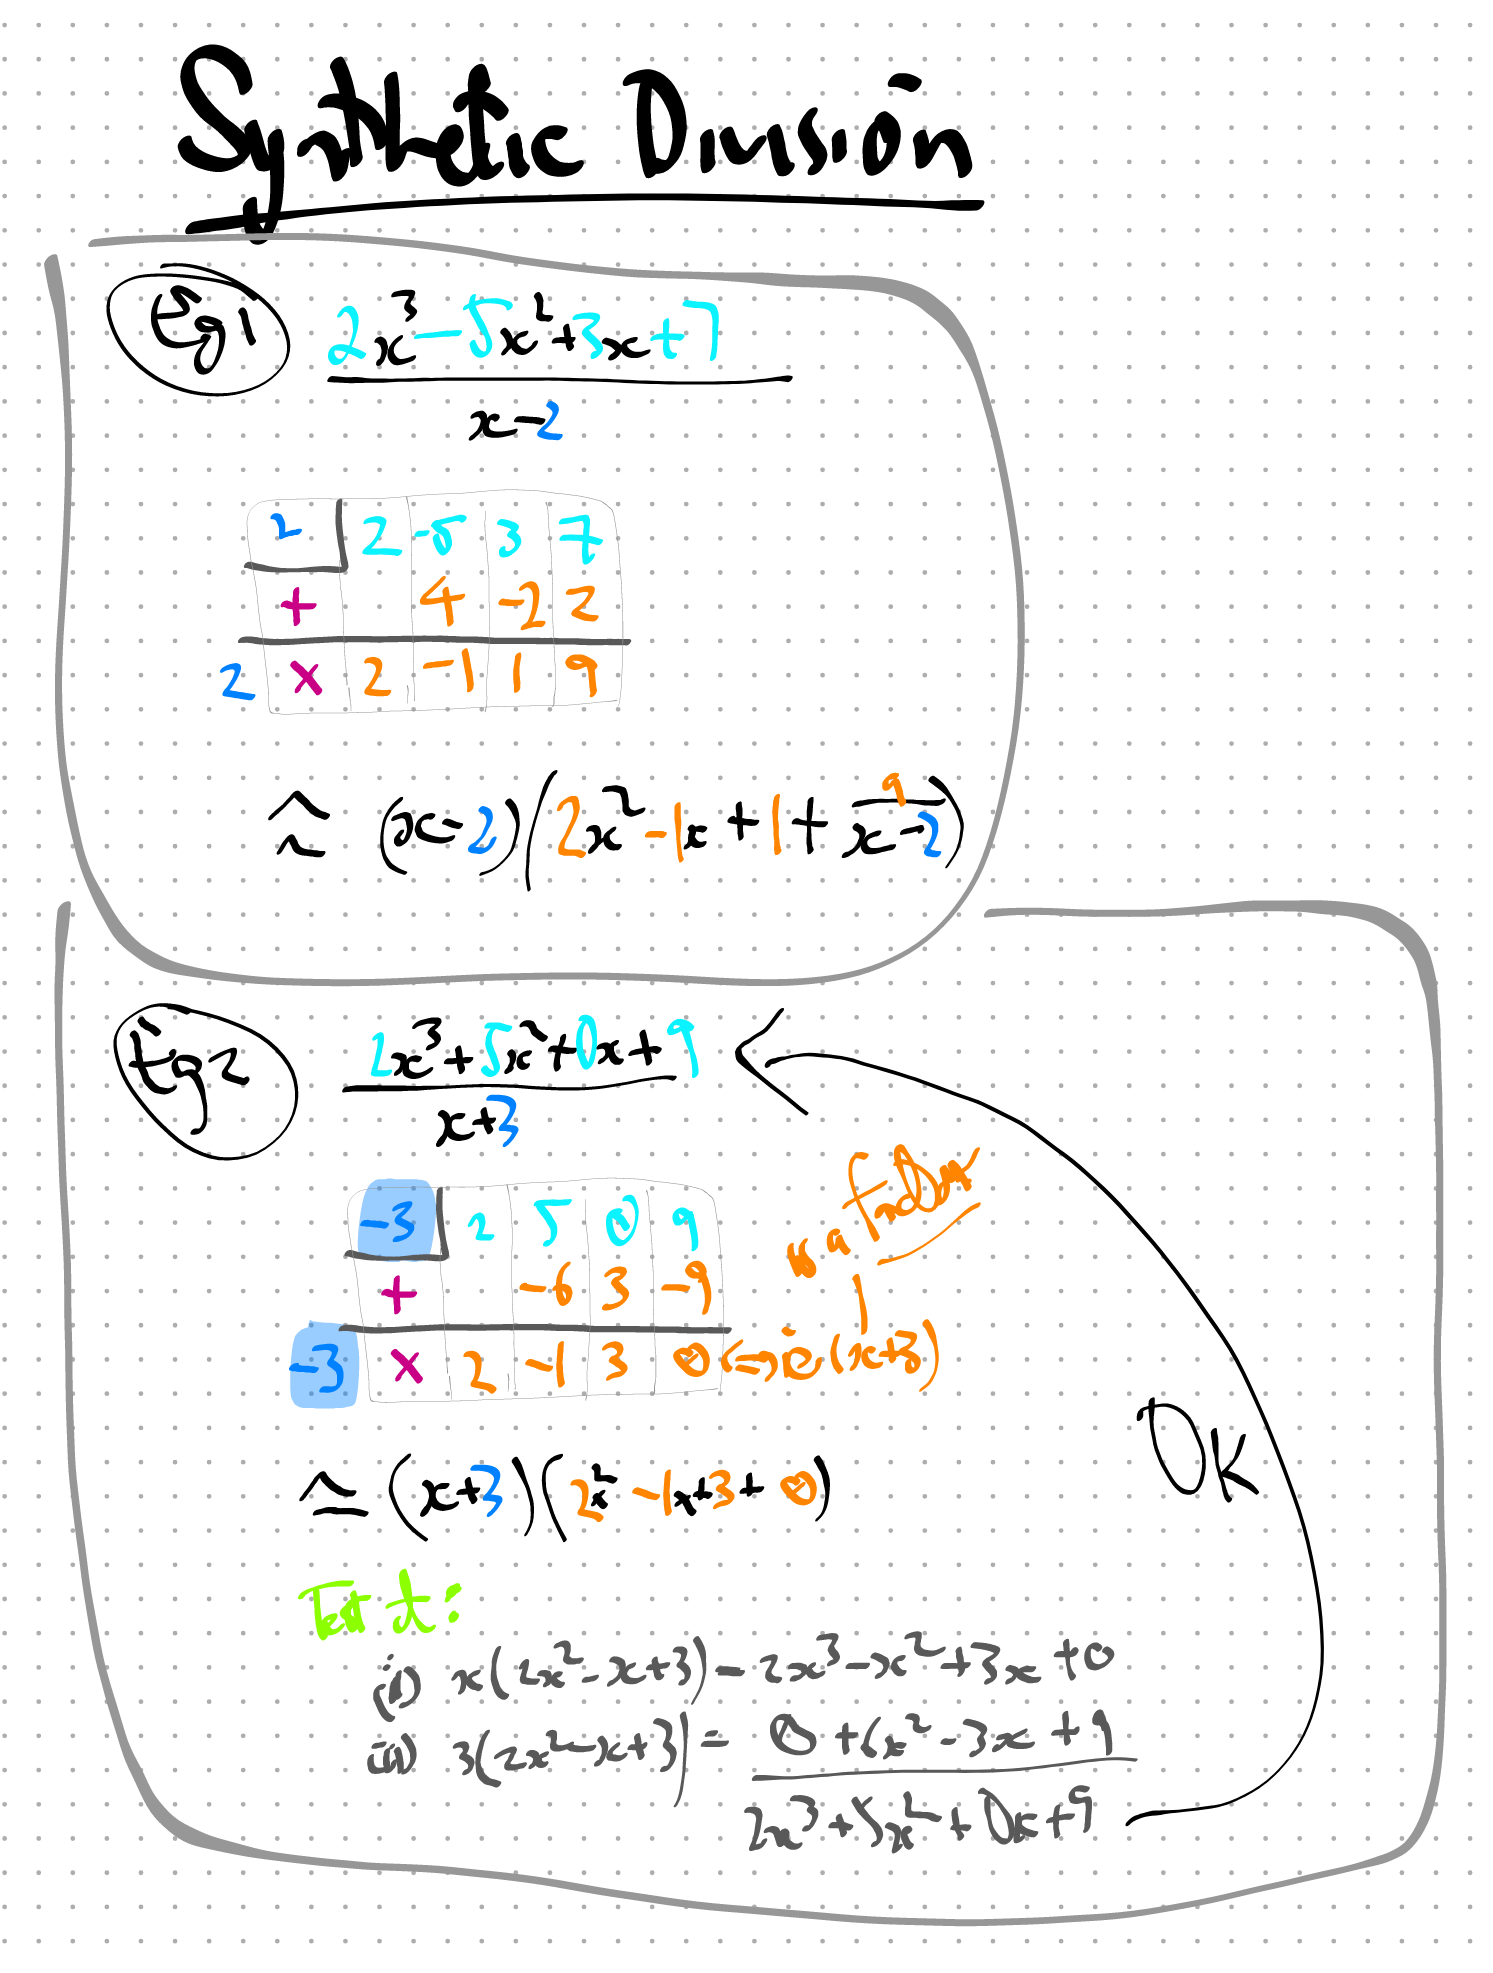 Synthetic Division
Eg1
2x³-5x²+3x+7
x-2
2 2 -5 3 7
+ 4 -2 2
2 x 2 -1 1 9
(x-2)(2x²-1x+1+9/x-2)
Eg2
2x³+5x²+0x+9
x+3
-3 2 5 0 9
is a factor
+ -6 3 -9
-3 x 2 -1 3 0 ⇔ ie (x+3)
≃ (x+3)(2x²-1x+3+0)
OK
Test it:
(i) x(2x²-x+3) = 2x³-x²+3x+0
(ii) 3(2x²-x+3) = 0+6x²-3x+9
2x³+5x²+0x+9